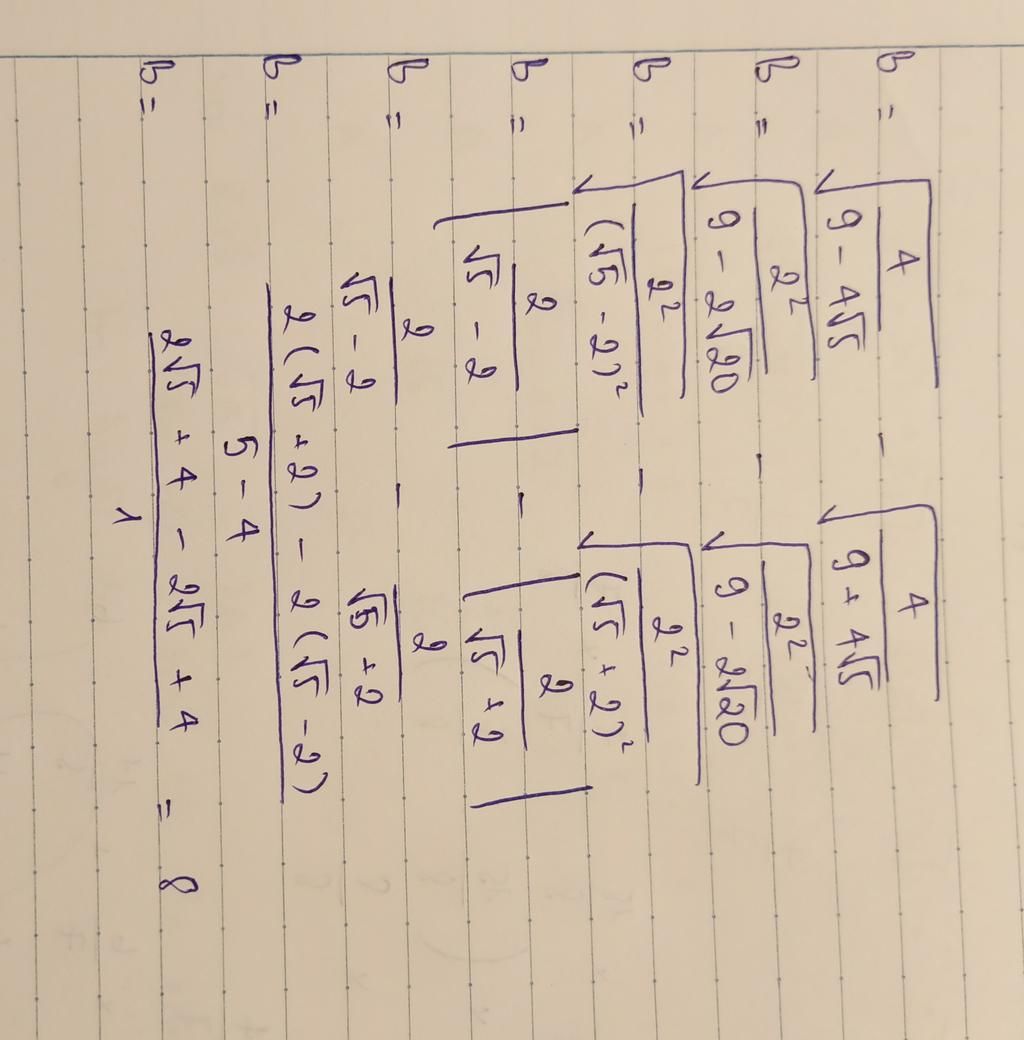 B = √(4/(9 - 4√5)) - √(4/(9 + 4√5))
B = √(2²/(9 - 2√20)) - √(2²/(9 - 2√20))
B = √(2²/(√5 - 2)²) - √(2²/(√5 + 2)²)
B = |2/(√5 - 2)| - |2/(√5 + 2)|
B = 2/(√5 - 2) - 2/(√5 + 2)
B = (2(√5 + 2) - 2(√5 - 2))/(5 - 4)
B = (2√5 + 4 - 2√5 + 4)/1 = 8